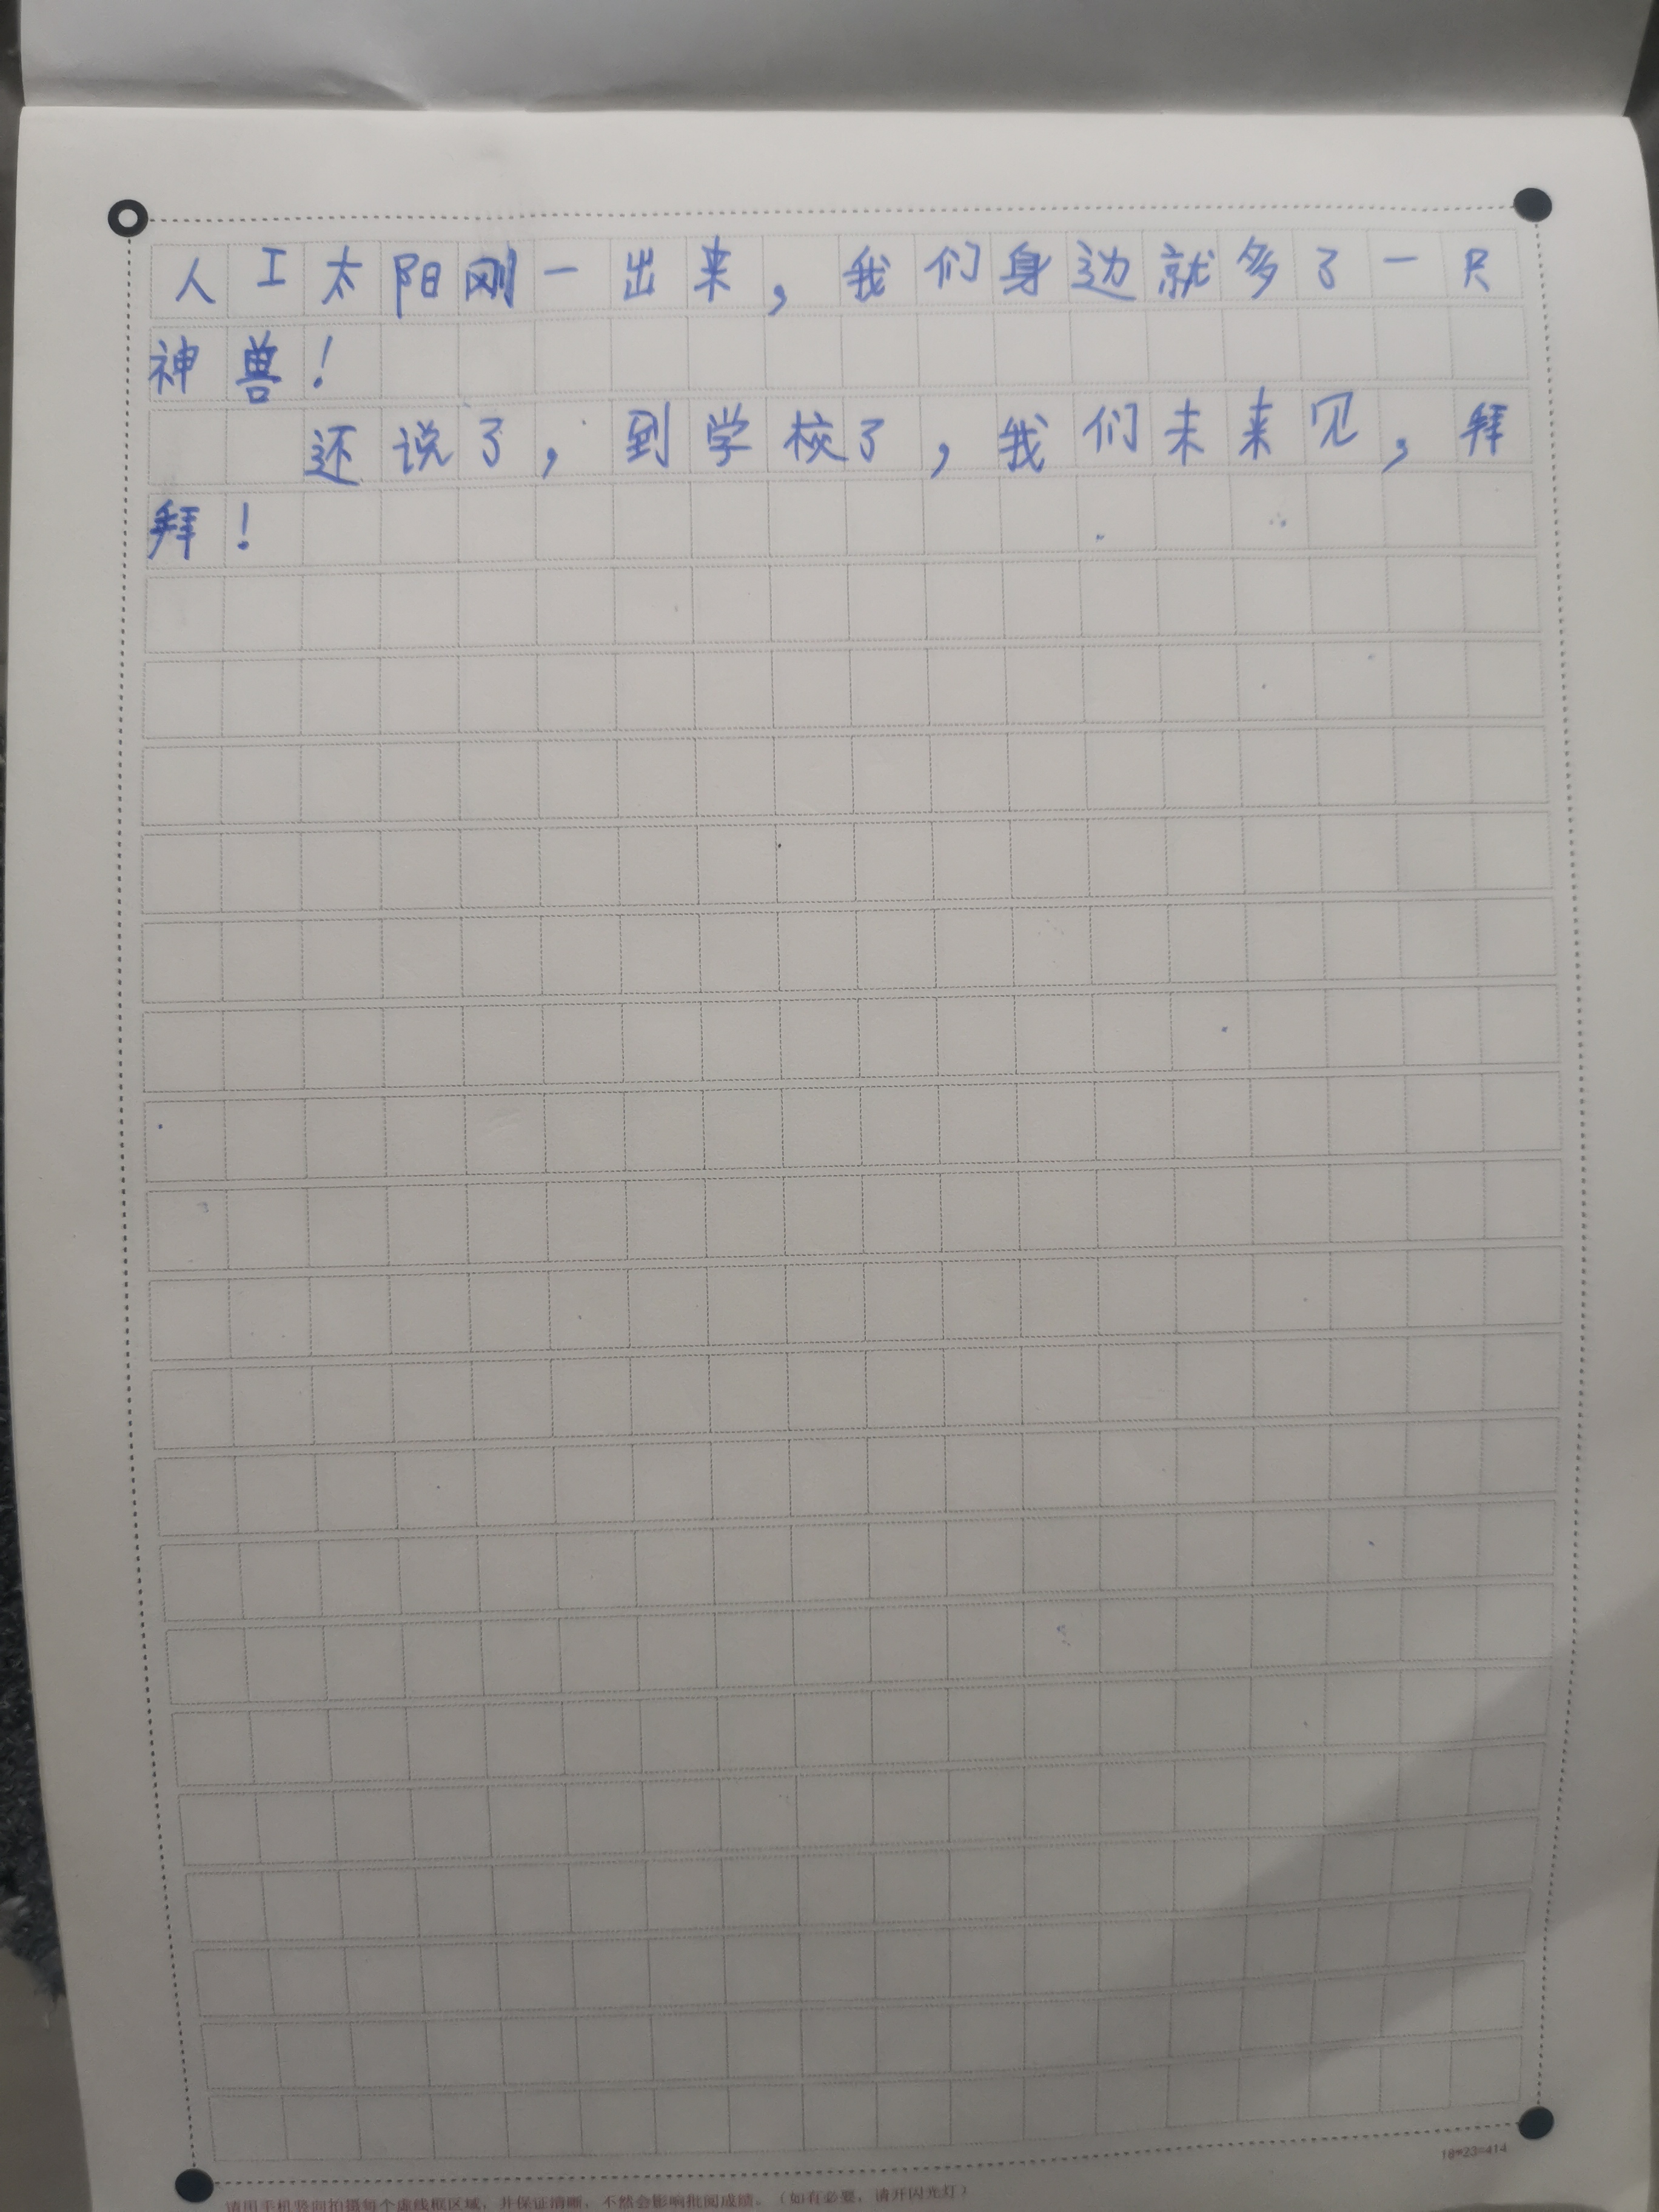 人工太阳刚一出来，我们身边就多了一尺
神兽！
还说了，到学校了，我们未来见，拜
拜！
18*23=414
请用手机竖向拍摄每个虚线框区域，并保证清晰，不然会影响批阅成绩。（如有必要，请开闪光灯）